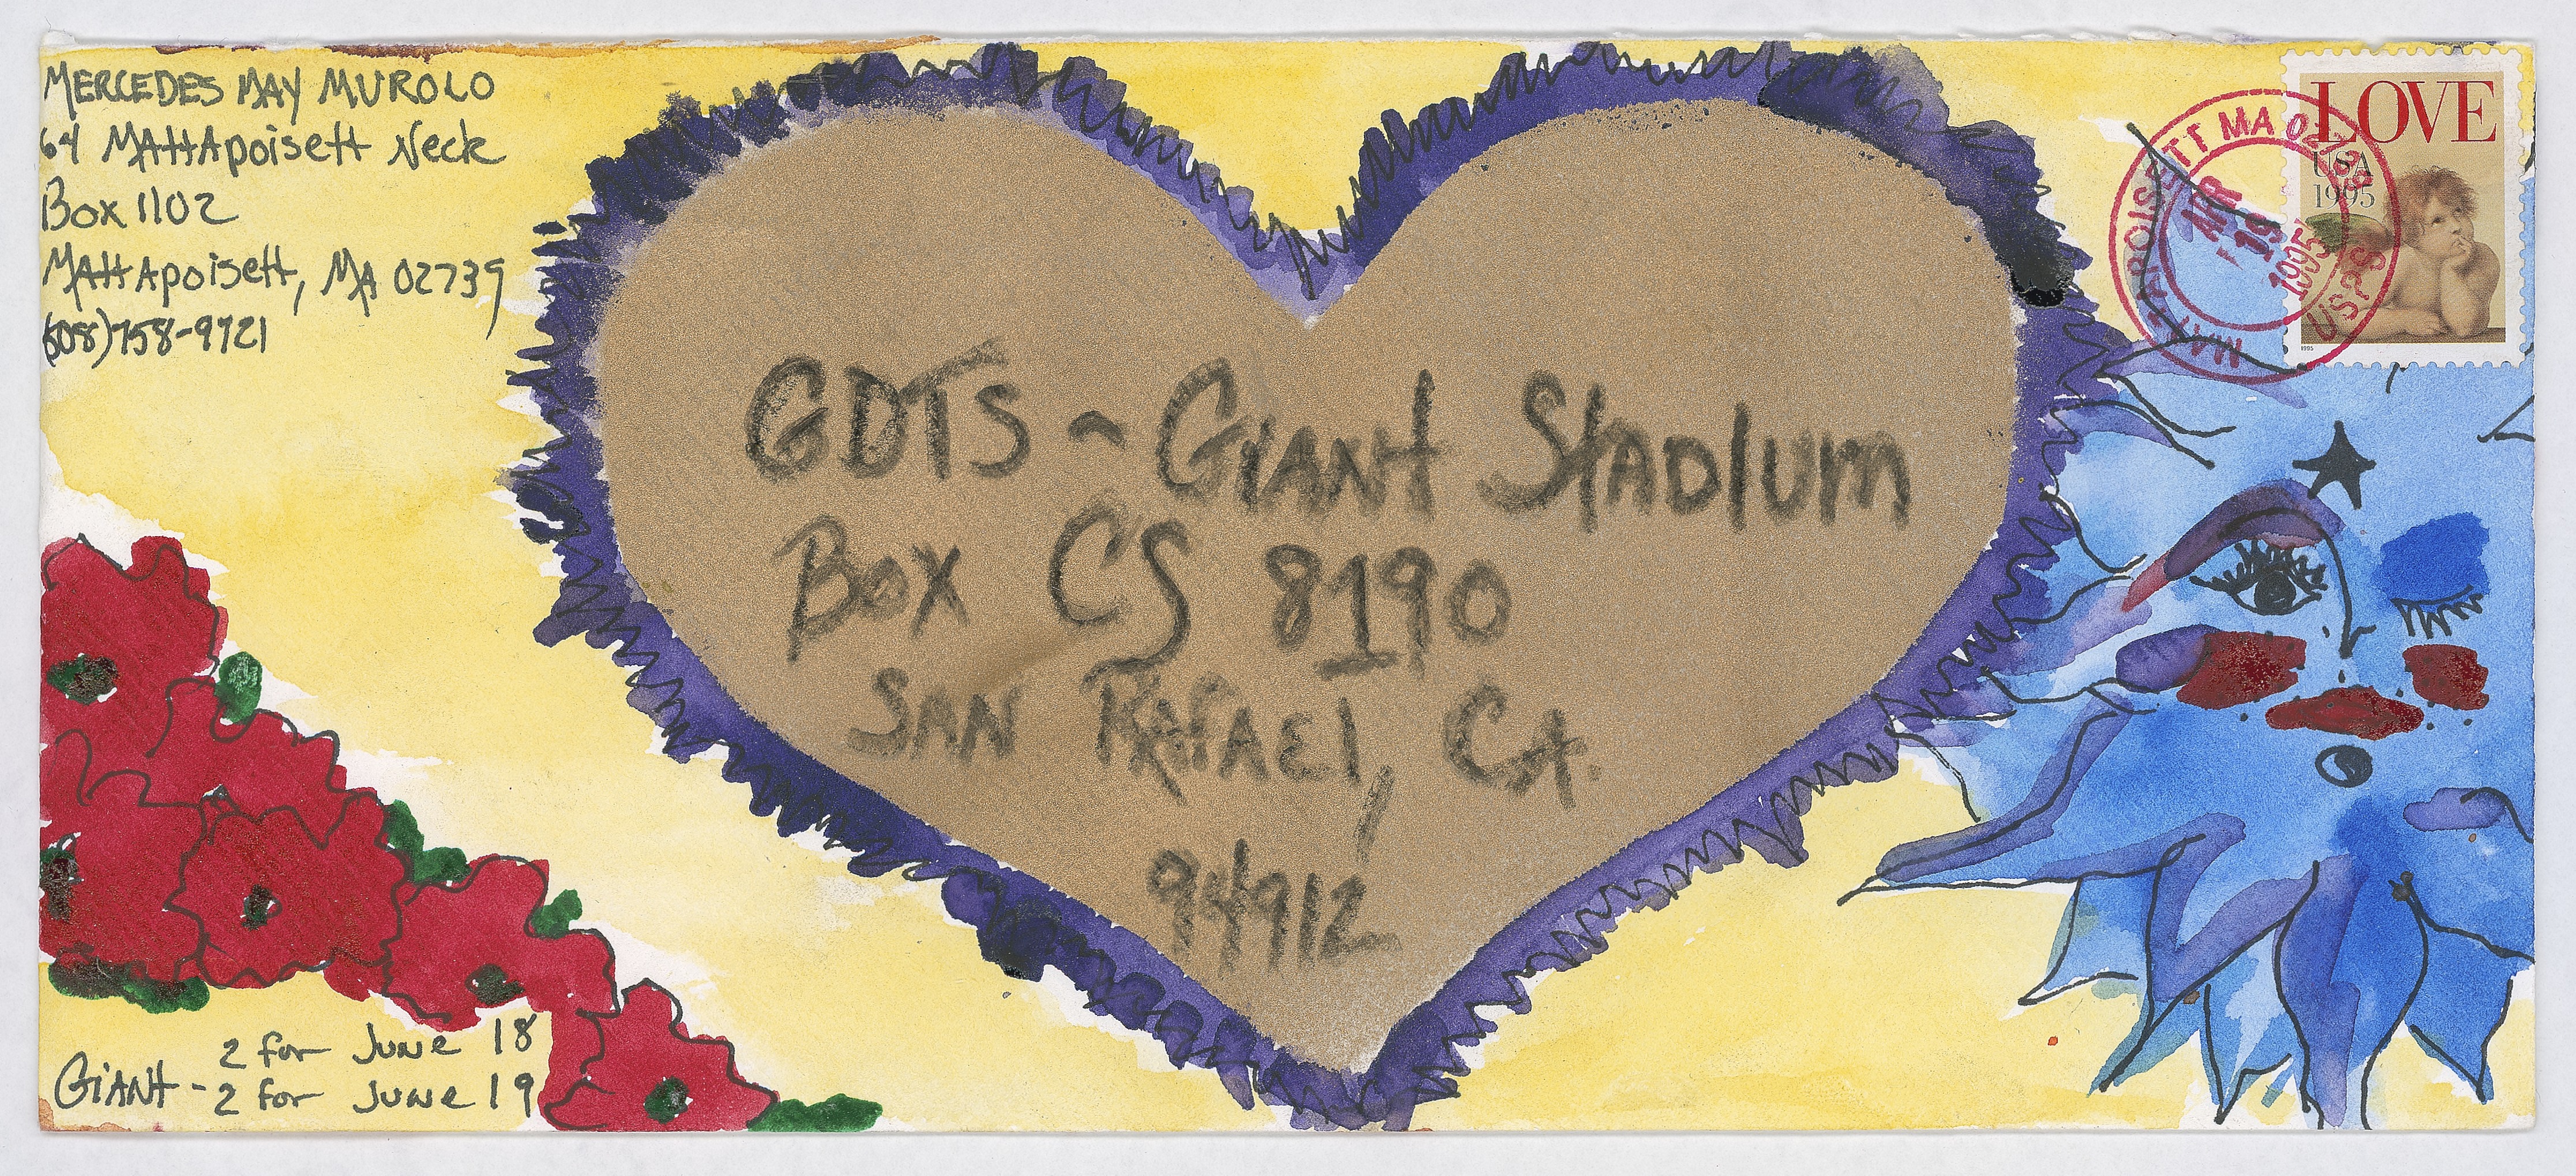 MERCEDES MAY MUROLO
64 MATTApoisett Neck
Box 1102
MATTApoisett, MA 02739
(508)758-9721
LOVE
USA
1995
MATTAPOISETT MA 02739
APR 19 1995
USPS
1995
GDTS ~ GIANT STADIUM
Box CS 8190
SAN RAFAEL, CA.
94912
2 for June 18
GIANT - 2 for June 19